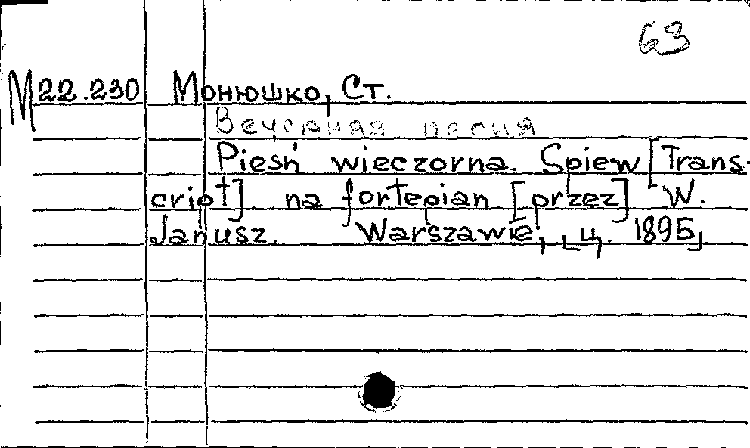 63
М22.230 Монюшко, Ст.
Вечерняя песня
Pieśń wieczorna. Spiew [Trans-
cript] na fortepian [przez] W.
Janusz. Warszawie, [ц. 1895]